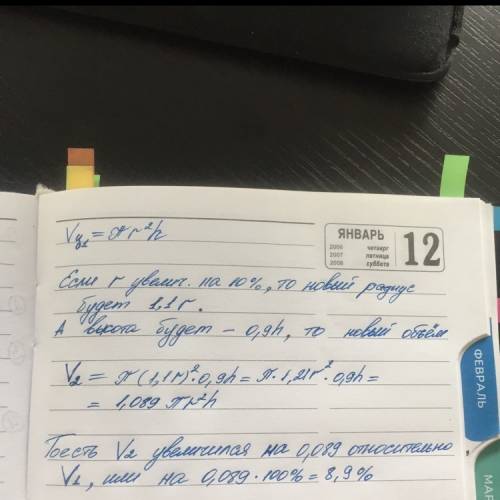 Vц₁ = πr²h
ЯНВАРЬ
2006 четверг
2007 пятница
2008 суббота
12
Если r увелич. на 10%, то новый радиус
будет 1,1r.
А высота будет – 0,9h, то новый объём
V₂ = π(1,1r)²·0,9h = π·1,21r²·0,9h =
= 1,089 πr²h
Тоесть V₂ увеличился на 0,089 относительно
V₁, или на 0,089·100% = 8,9%
ФЕВРАЛЬ
МАР